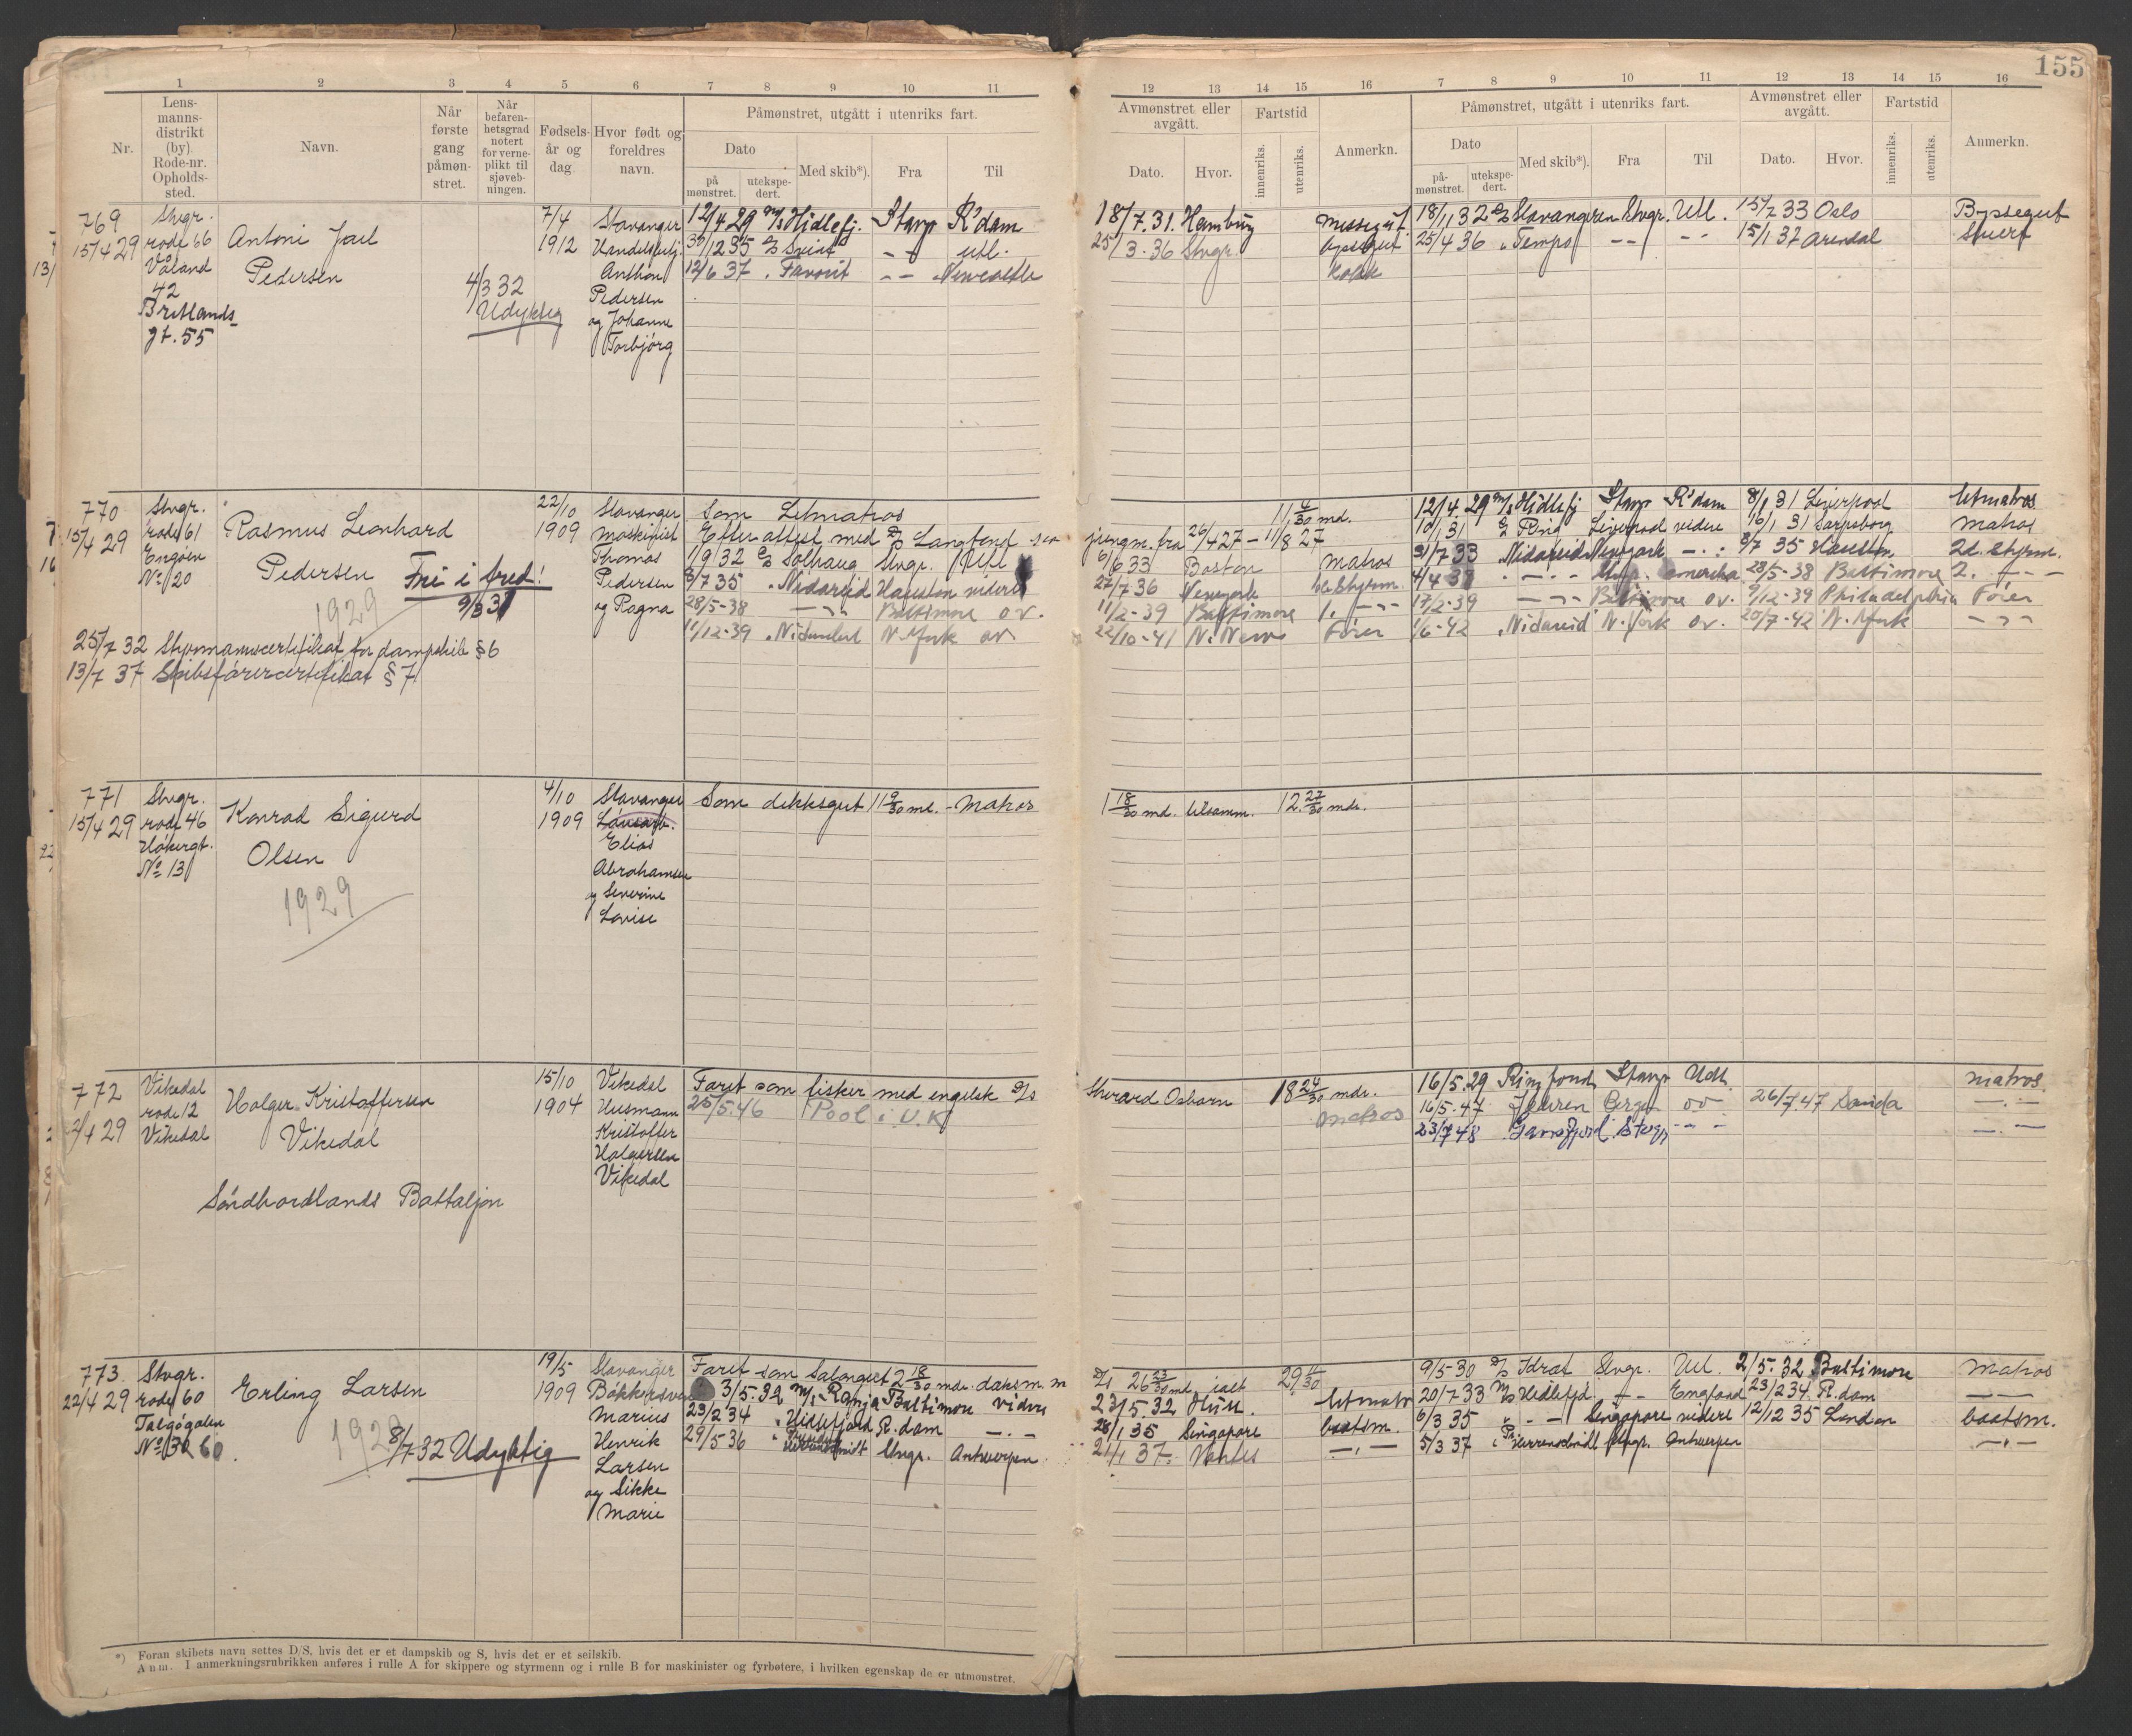 155
1 2 3 4 5 6 7 8 9 10 11
Nr.
Lens-
manns-
distrikt
(by).
Rode-nr.
Opholds-
sted.
Navn.
Når
første
gang
påmøn-
stret.
Når
befaren-
hetsgrad
notert
for verne-
plikt til
sjøveb-
ningen.
Fødsels-
år og
dag
Hvor født og
foreldres
navn.
Påmønstret, utgått i utenriks fart.
Dato
på
mønstret.
utekspe-
dert.
Med skib*).
Fra
Til
12 13 14 15 16 7 8 9 10 11 12 13 14 15 16
Avmønstret eller
avgått.
Dato.
Hvor.
Fartstid
innenriks.
utenriks.
Anmerkn.
Påmønstret, utgått i utenriks fart.
Dato
på-
mønstret.
utekspe-
dert.
Med skib*).
Fra
Til
Avmønstret eller
avgått.
Dato.
Hvor.
Fartstid
innenriks.
utenriks.
Anmerkn.
769
15/4 29
Stvgr.
rode 66
Våland
42
Antoni
Pedersen
4/3 32
Udyktig
7/4
1912
Stavanger
Anthon
Pedersen
og Johanne
Torbjørg
gt. 55
12/4 29 M/S Hidlefj. Stavgr R'dam
18/7.31. Hamburg messegut
18/11 32 D/S Stavangeren Stvgr. Utl. 15/7 33 Oslo Byssegut
30/12 35 D/S -- utl.
25/3.36 Stvgr.
25/4 36 " Tempo -- -- 15/1 37 Arendal
12/6 37 " Favorit -- Newcastle Kokk
770
15/4 29
Stvgr.
rode 61
Engøen
No 20
Rasmus Leonhard
Pedersen
Fri i fred!
1929
22/10
1909
Stavanger
maskinist
Thomas
Pedersen
og Ragna
Som Letmatros
12/4 29 M/S Hidlefj Stavgr R'dam 8/1 31 Liverpool Letmatros
Efter attest med D/S Langfond som
jungm. fra 26/4 27 - 11/8 27
10/1 31 Liverpool videre 16/1 31 Sarpsborg Matros
1/9 32 D/S Solhaug Stvgr. Utl
6/6 33 Boston Matros
31/7 33 " Nidareid Newyork -.- 3/7 35 Houston 2d. Styrm.
3/7 35 " Nidareid Houston videre
27/7 36 Newyork
4/4 37 Stvgr. amerika 28/5-38 Baltimore 2.
28/5-38 Baltimore o v.
11/2-39 Baltimore 1.
17/2-39 Baltimore o v. 9/12-39 Philadelphia Fører
11/12-39 N. York ov
22/10-41 N. News Fører
1/6-42 " Nidareid N. York o v. 20/7-42 N. York
25/7 32 Styrmannscertifikat for dampskib § 6
13/7 37 Skibsførercertifikat § 7
771
15/4 29
Stvgr.
rode 46
Høkergt.
No 13
Konrad Sigurd
Olsen
1929
4/10
1909
Stavanger
Elias
Abrahamsen
og Severine
Lovise
Som dekksgut 11 9/30 md. - Matros
1 18/30 md. tilsamm. 12. 27/30 mdr.
772
2/4 29
Vikedal
rode 12
Vikedal
Holger Kristoffersen
Vikedal
Søndhordlands Bataljon
15/10
1904
Vikedal
Husmann
Kristoffer
Holgersen
Vikedal
Faret som fisker med engelsk D/S
Sherard Osborn 18 24/30 mdr.
16/5.29 Ringfond Stavgr Utl. matros.
25/5.46 Pool i U.K
Matros
16/5.47 Jæren Bergen ov 26/7 47 Sauda
23/7 48
773.
22/4 29
Stvgr.
rode 60
No 130 60
Erling Larsen
8/7 32 Udyktig
19/5
1909
Stavanger
Marius
Henrik
Larsen
og Sikke
Marie
Faret som Salongut 2 18/30 mdr. daksm. m
D/S 26 23/30 md. ialt 29 11/30
9/5-30 D/S Idrat Stvgr. Utl. 2/5.32 Baltimore Matros
3/5.32 M/S Ranja Baltimore videre
23/5.32 Hull. letmatr
20/7 33 M/S Hidlefjd. -- England 23/2 34. R.dam
23/2 34 " Hidlefjord R.dam -.-
26/1 35 Singapore baatsm.
6/3 35 " -- Singapore videre 12/12 35 London baatsm.
29/5 36 Stvgr. Antwerpen
21/1 37. Nantes -.-
5/3 37 Stvgr. Antwerpen -.-
*) Foran skibets navn settes D/S, hvis det er et dampskib og S, hvis det er et seilskib.
Anm. I anmerkningsrubrikken anføres i rulle A for skippere og styrmenn og i rulle B for maskinister og fyrbøtere, i hvilken egenskap de er utmønstret.